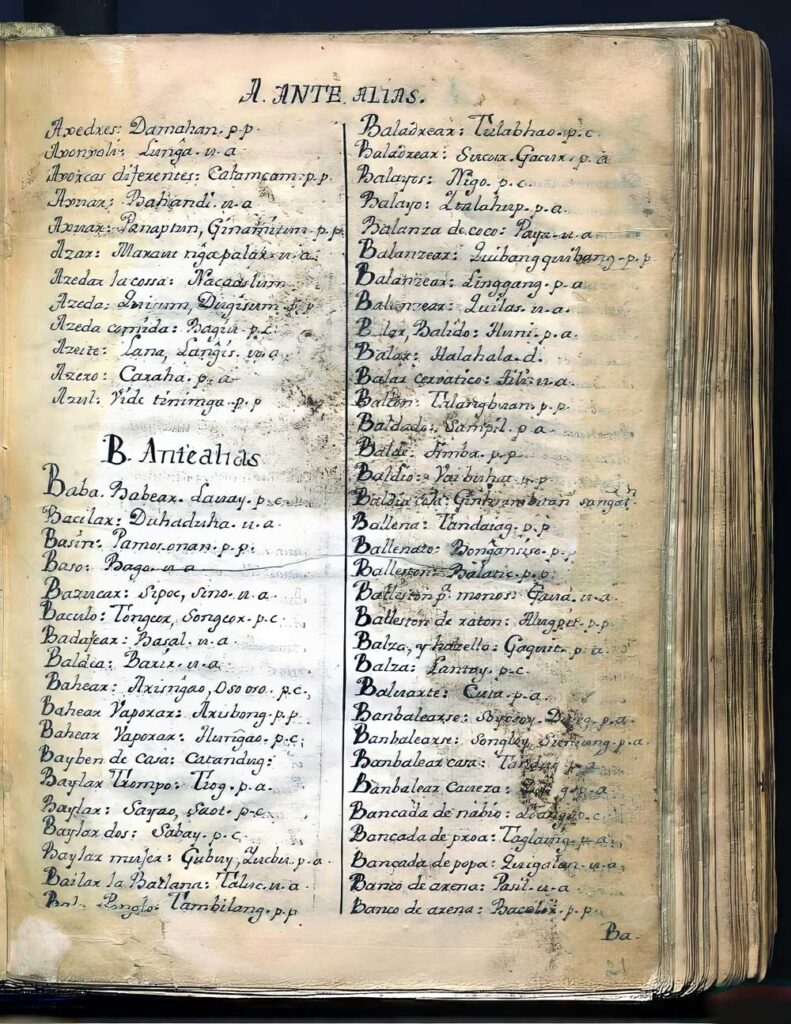 A. ANTE. ALIAS.
Axedres: Damahan. p. p
Axonxoli: Lunga. u. a
Axorcas diferentes: Calamcam. p. p.
Axuar: Bahandi. u. a
Axuar: Panaptun, Ginamitum. p. p
Azar: Maraut ngapalar. u. a
Azedar la cossa: Nacaaslum
Azeda: Quirum, Dugisum. p. p
Azeda comida: Bagiu. p. c.
Azeite: Lana, Langis. u. a
Azero: Caraha. p. a
Azul: Vide tinimga. p. p
B. Antealias
Baba. Babear. Lauay. p. c.
Bacilar: Duhaduha. u. a.
Basin: Pamos.onan. p. p.
Baso: Bago. u. a
Bazucar: Sipoc, Sino. u. a.
Baculo: Tongcor, Songcor. p. c.
Badajear: Basal. u. a.
Baldca: Barir. u. a.
Bahear: Axisngao, Oso oro. p. c,
Bahear Vaporar: Axubong. p. p.
Bahear Vaporar: Hurigao. p. c;
Bayben de casa: Catandug:
Baylar Trompo: Trog. p. a.
Baylar: Sayao, Saot. p. c.
Baylar dos: Sabay. p. c.
Baylar mujer: Gubuy, p. a
Bailar la Batlana: Taluc. u. a
Tambilang. p. p
Baladrear: Tulabhao. p. c
Baladrear: Sucur. Gacur. p. a
Balayos: Nigo. p. c.
Balayo: p. a.
Balanza de coco: Paya. u. a
Balanzear: Quibang quibang. p. p
Balanzear: Linggang. p. a
Balanzear: Quilas. u. a.
Balar, Balido: Huni. p. a.
Balar: Halahala. d.
Balar cervatico: u. a
Balcon: Talangbuan. p. p.
Baldado: Sampil. p. a.
Balde: Timba. p. p
Baldio: p. p.
Baldia
Ballena: Tandaiag. p. p
Ballenato: Bonganiso. p. p
Balleston: Balatic. p. p.
Balleston pa. monos: Gaua. u. a
Balleston de raton: Alugpit. p. p.
Balza, y hazello: Gaquit. p. a
Balza: Lantay. p. c.
Baluarte: Cuta. p. a.
Banbalearse: p. a.
Banbalearse: Songloy, p. a.
Banbalear casa: Tandug p. a
Banbalear caveza: p. a
Bancada de nabio: c
Bancada de proa: Taglaing. p. a.
Bancada de popa: Quigalan. u. a.
Banco de arena: Pasil. u. a
Banco de arena: Bacolor. p. p.
Ba.
21